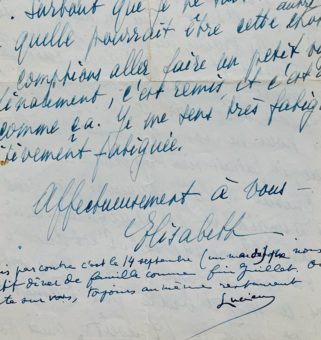 Surtout que je ne
quelle pourrait être cette cho
comptions aller faire un petit
finalement, c'est remis, et c'est
comme ça. Je me sens très fatig
fatiguée.
Affectueusement à vous —
Elisabeth
par contre c'est le 14 septembre (un mardi) que nous
dîner de famille comme fin juillet.
sur vous, toujours au même restaurant
Lucien